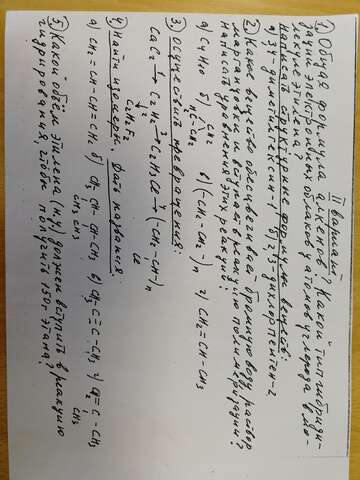 II вариант
1. Общая формула алкенов? Какой тип гибриди-
дации электронных облаков у атомов углерода в мо-
лекуле этилена?
Написать структурные формулы веществ:
а) 3,4-диметилгексин-1 б) 2,3-дихлорпентен-2
2. Какое вещество обесцвечивает бромную воду, раствор
марганцовки и вступает в реакцию полимеризации?
Написать уравнения этих реакций?
а) C4H10 б) CH2 CH2 H2C-CH2 в) (-CH2-CH2-)n г) CH2=CH-CH3
3. Осуществить превращения:
CaC2 1→ C2H2 3→ C2H3Cl 4→ (-CH2-CH-)n
2↓ Cl
C2H2F2
4. Найти изомеры. Дать названия.
а) CH2=CH-CH=CH2 б) CH3-CH-CH-CH3 в) CH3-C≡C-CH3 г) CH2=C-CH3
CH3 CH3 CH3
5. Какой объём этилена (н.у) должен вступить в реакцию
гидрирования, чтобы получить 150г этана?